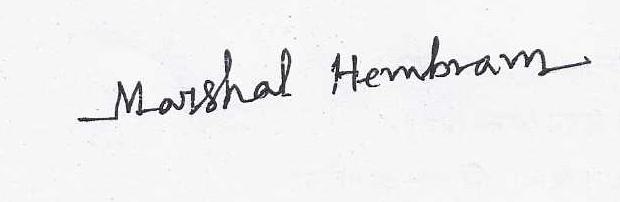 Marshal Hembram